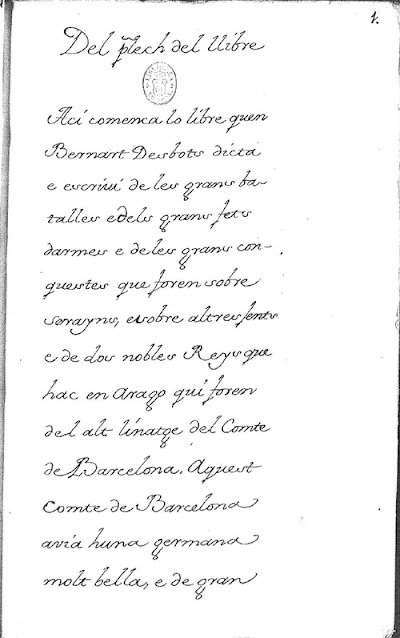 1.
Del plech del llibre
Aci comenca lo libre quen
Bernart Desbots dicta
e escriui de les grans ba-
talles e dels grans fets
darmes e de les grans con-
questes que foren sobre
serayns, e sobre altres gents
e de dos nobles Reys que
hac en Arago qui foren
del alt linatge del Comte
de Barcelona. Aquest
Comte de Barcelona
avia huna germana
molt bella, e de gran